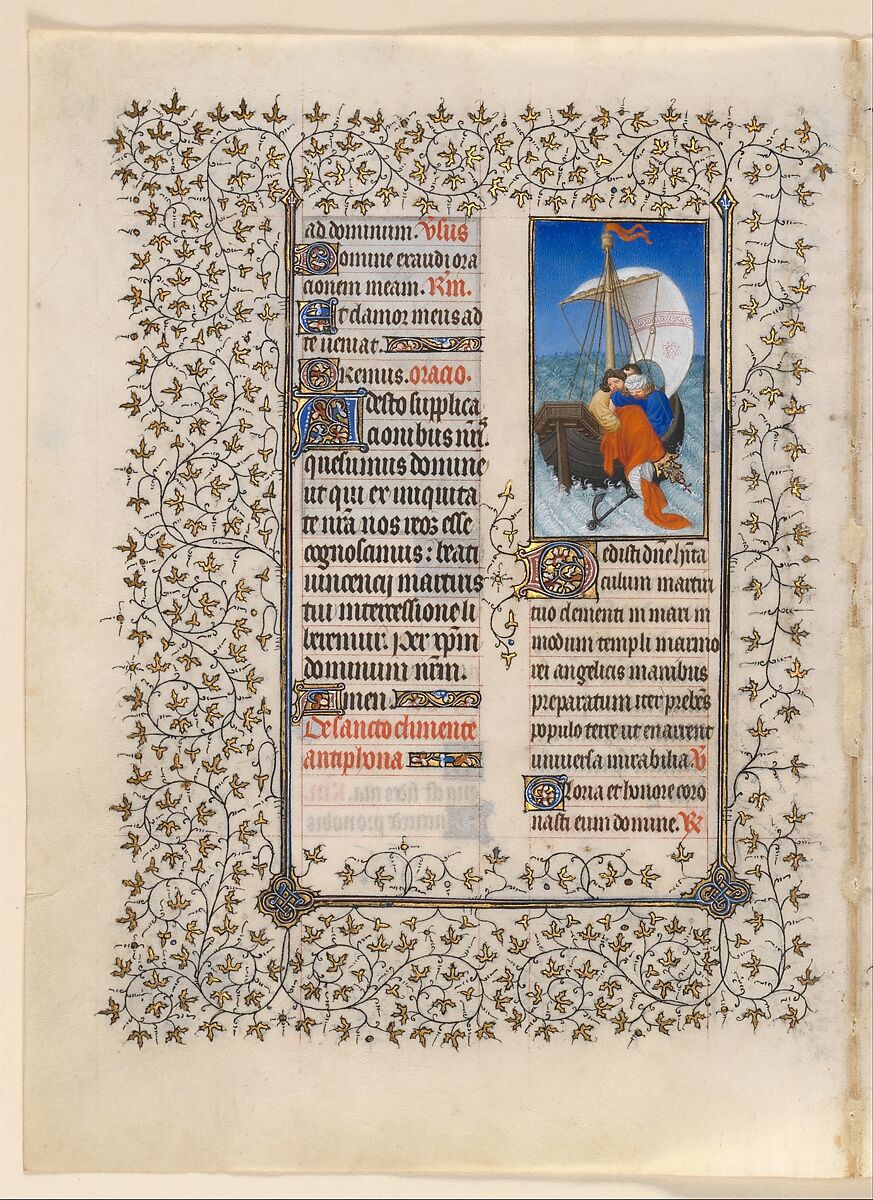 ad dominum. Vsus
Domine exaudi ora
cionem meam. Rm.
Et clamor meus ad
te ueniat.
Oremus. oracio.
Adesto supplica
cionibus nrīs.
quesumus domine
ut qui ex iniquita
te nrā nos reos esse
cognoscimus: beati
uincencij martiris
tui intercessione li
beremur. Per xp̄m
dominum nr̄m.
Amen.
De sancto climente
antiphona
Dedisti dn̄e hīta
culum martiri
tuo clementi in mari in
modum templi marmo
rei angelicis manibus
preparatum iter prebēs
populo terre ut enarrent
uniuersa mirabilia V
Gloria et honore coro
nasti eum domine. R